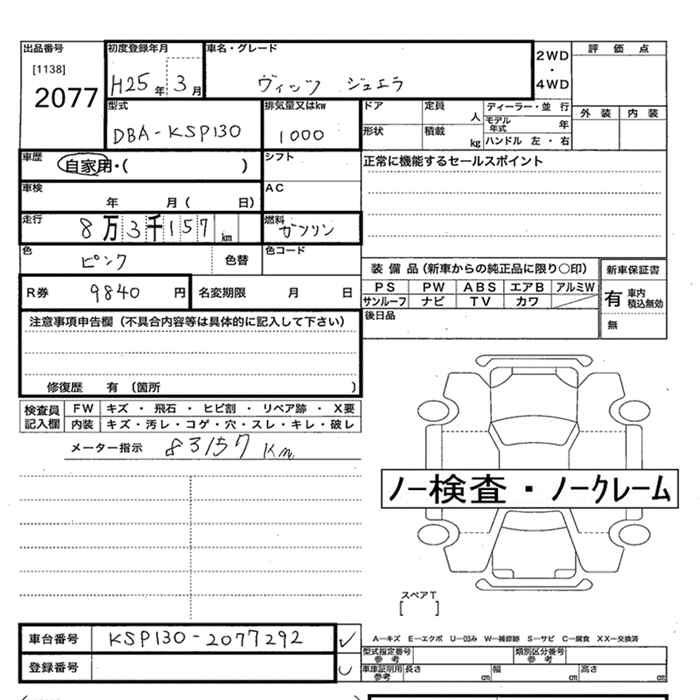 出品番号
[1138]
2077
初度登録年月
H25年 3月
車名・グレード
ヴィッツ ジュエラ
2WD
・
4WD
評価点
外装 内装
型式
DBA-KSP130
排気量又はkw
1000
ドア
定員 人
形状
積載 kg
ディーラー・並行
モデル年式 年
ハンドル 左・右
車歴
自家用・( )
シフト
正常に機能するセールスポイント
車検
年 月( 日)
AC
走行
8万3千157km
燃料
ガソリン
色
ピンク
色替
色コード
R券 9840 円
名変期限 月 日
装備品(新車からの純正品に限り○印)
PS PW ABS エアB アルミW
サンルーフ ナビ TV カワ
後日品
新車保証書
有 車内積込無効
無
注意事項申告欄(不具合内容等は具体的に記入して下さい)
修復歴 有 (箇所 )
検査員記入欄
FW キズ・飛石・ヒビ割・リペア跡・X要
内装 キズ・汚レ・コゲ・穴・スレ・キレ・破レ
メーター指示 83157 Km
ノー検査・ノークレーム
スペアT
[ ]
車台番号 KSP130-2077292
登録番号
A─キズ E─エクボ U─凹み W─補修跡 S─サビ C─腐食 XX─交換済
型式指定番号
参考
類別区分番号
参考
車庫証明用
参考
長さ cm 幅 cm 高さ cm